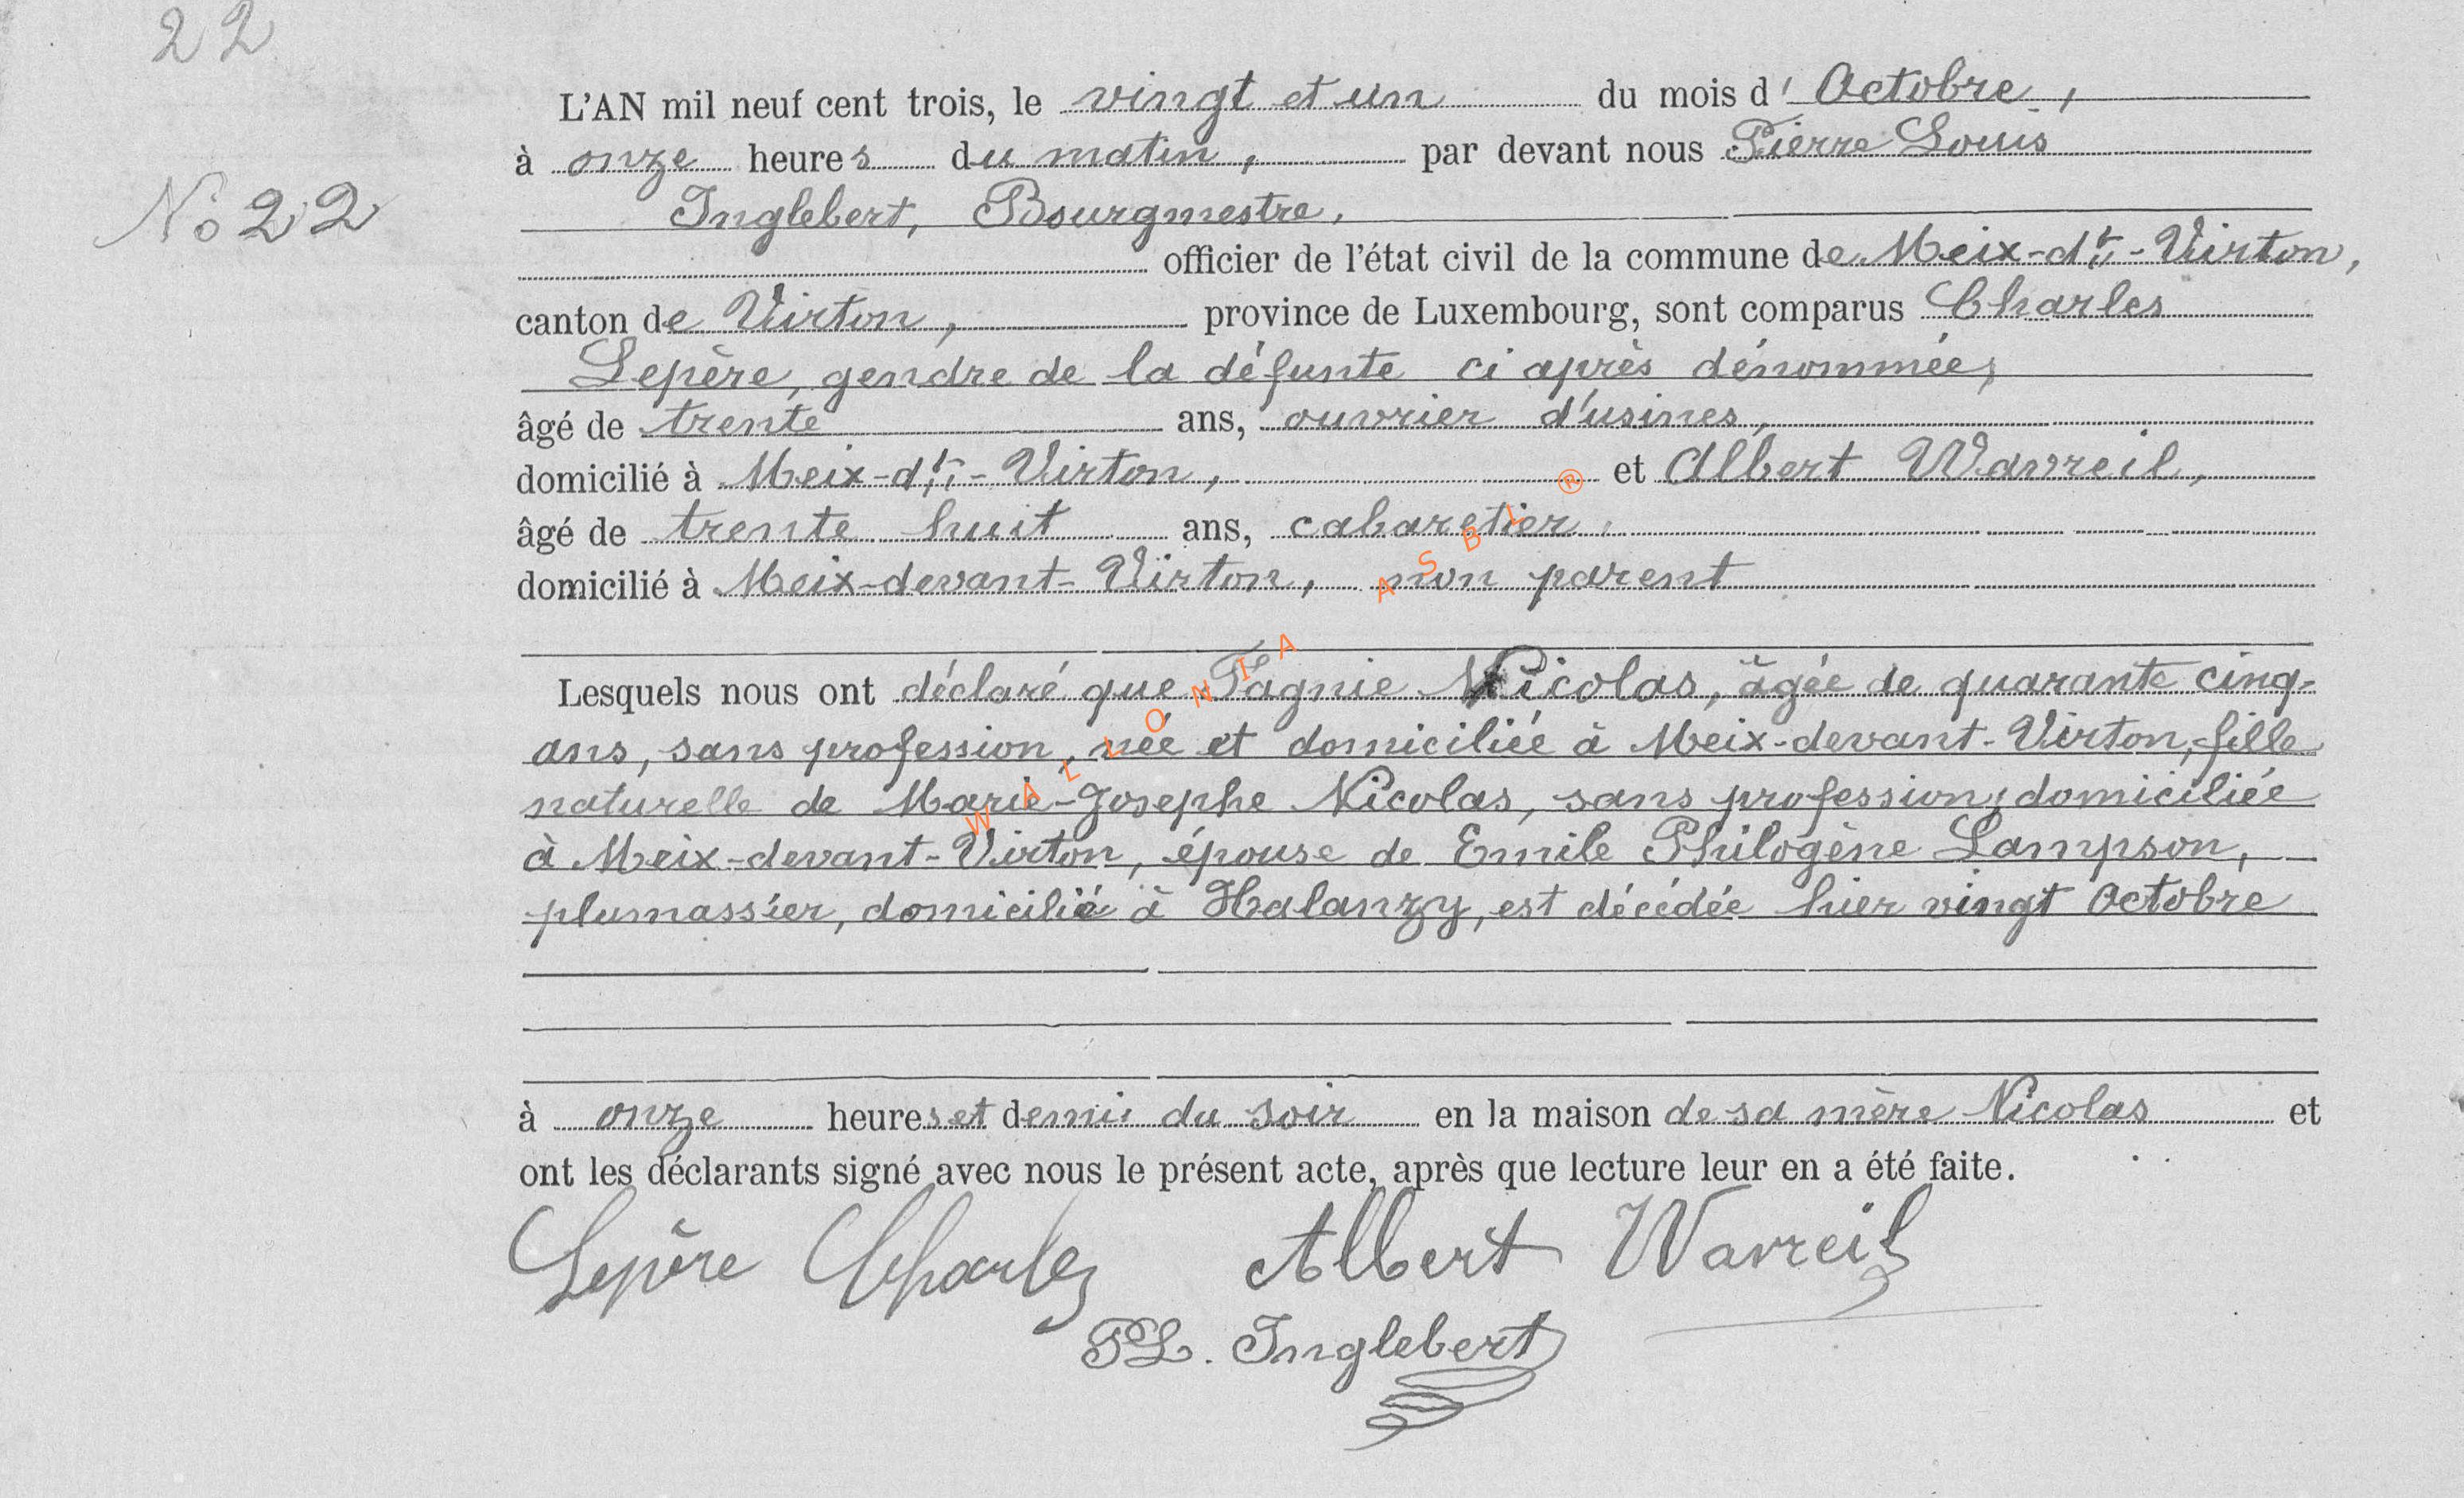 22
L'AN mil neuf cent trois, le vingt et un du mois d'Octobre,
à onze heures du matin, par devant nous Pierre Louis
No 22
Inglebert, Bourgmestre,
officier de l'état civil de la commune de Meix-dt-Virton,
canton de Virton, province de Luxembourg, sont comparus Charles
Lepère, gendre de la défunte ci après dénommée,
âgé de trente ans, ouvrier d'usines,
domicilié à Meix-dt-Virton, et Albert Wavreil,
âgé de trente huit ans, cabaretier,
domicilié à Meix-devant-Virton, non parent
Lesquels nous ont déclaré que Fagnie Nicolas, âgée de quarante cinq
ans, sans profession, née et domiciliée à Meix-devant-Virton, fille
naturelle de Marie-Josephe Nicolas, sans profession, domiciliée
à Meix-devant-Virton, épouse de Emile Philogène Lampson,
plumassier, domicilié à Halanzy, est décédée hier vingt Octobre
à onze heures et demie du soir en la maison de sa mère Nicolas et
ont les déclarants signé avec nous le présent acte, après que lecture leur en a été faite.
Lepère Charles Albert Wavreil
PL. Inglebert
WALLONIA ASBL ®